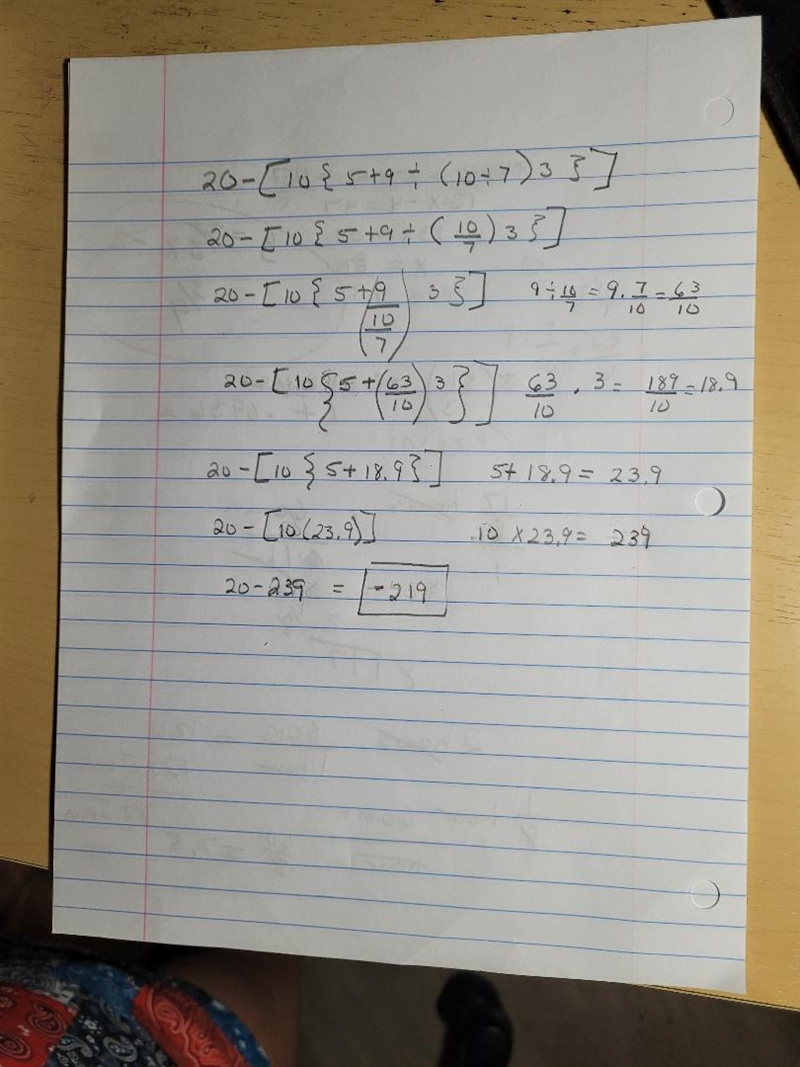 20-[10{5+9÷(10÷7)3}]
20-[10{5+9÷(10/7)3}]
20-[10{5+9/(10/7) 3}] 9÷10/7=9·7/10=63/10
20-[10{5+(63/10)3}] 63/10·3=189/10=18.9
20-[10{5+18.9}] 5+18.9=23.9
20-[10(23.9)] 10×23.9=239
20-239=-219